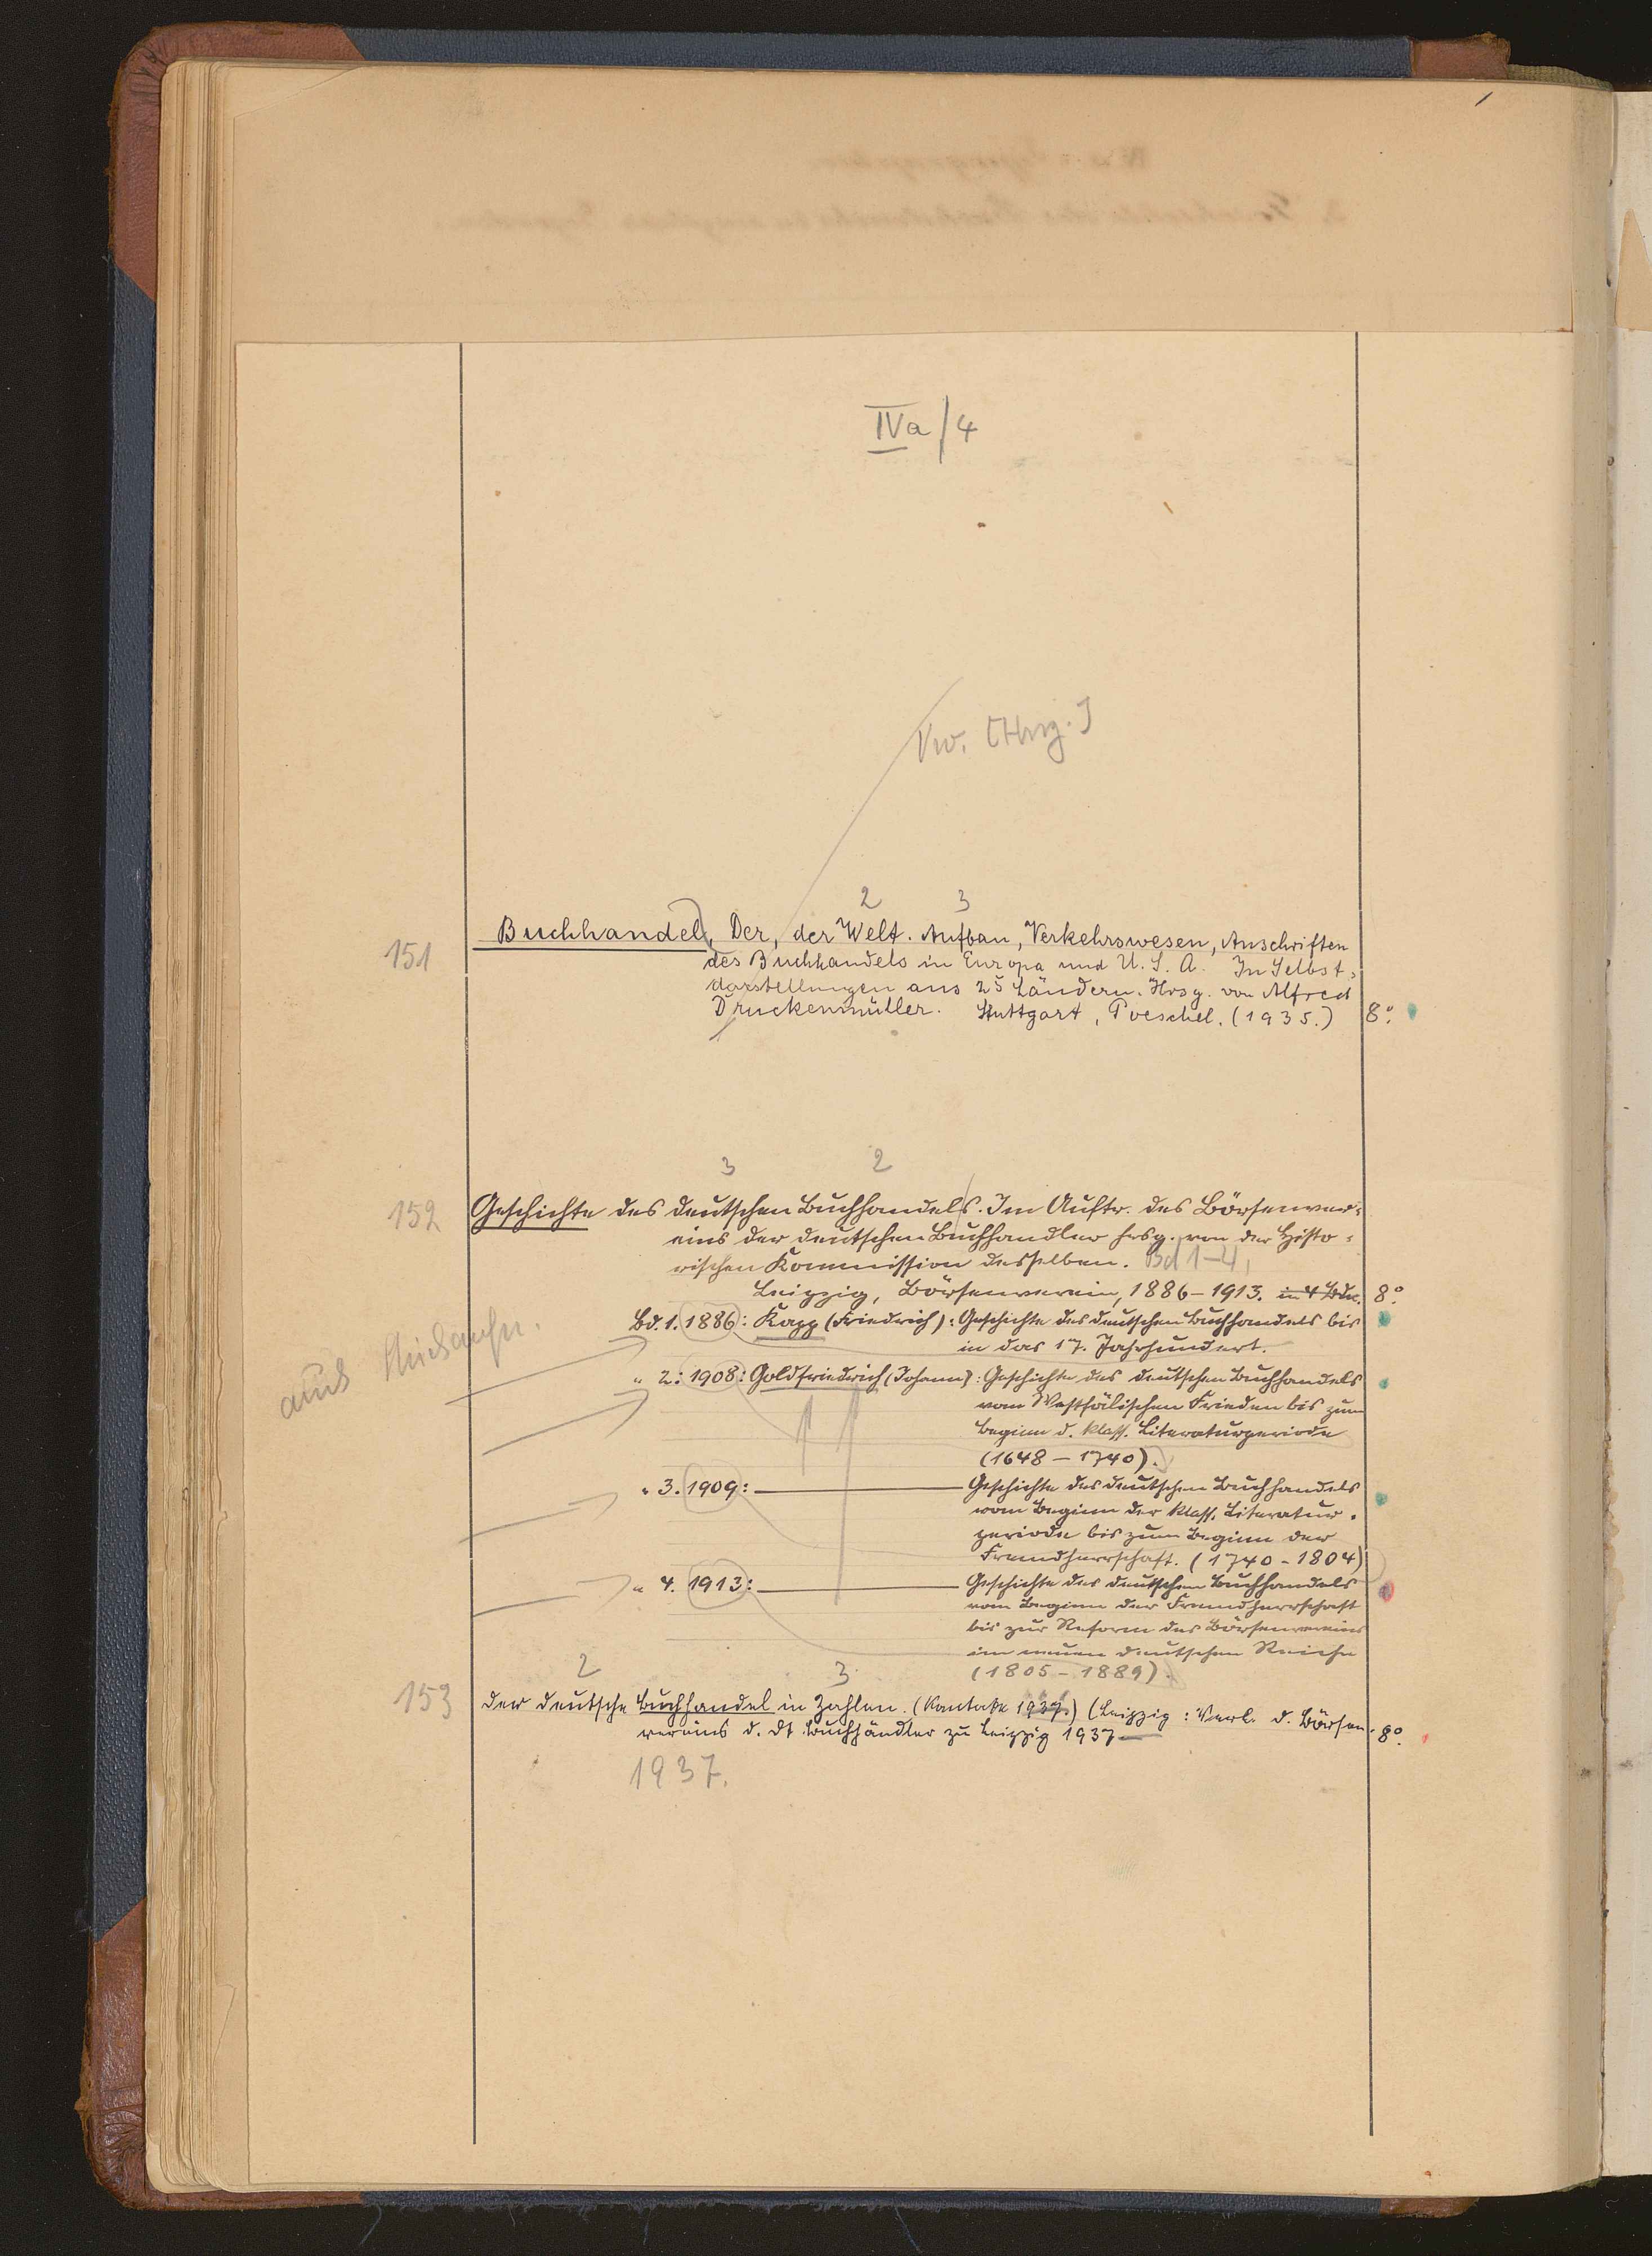 IVa/4
Vw. [Hrsg.]
2 3
151 Buchhandel, Der, der Welt. Aufbau, Verkehrswesen, Anschriften
des Buchhandels in Europa und U. S. A. In Selbst-
darstellungen aus 25 Ländern. Hrsg. von Alfred
Druckenmüller. Stuttgart, Poeschel. (1935.) 8°.
3 2
152 Geschichte des deutschen Buchhandels. Im Auftr. des Börsenver-
eins der deutschen Buchhandler hrsg. von der Histo-
rischen Kommission desselben. Bd 1-4,
Leipzig, Börsenverein, 1886-1913. in 4 Bdn. 8°.
Bd. 1. 1886: Kapp (Friedrich): Geschichte des deutschen Buchhandels bis
in das 17. Jahrhundert.
aus
" 2: 1908: Goldfriedrich (Johann): Geschichte des deutschen Buchhandels
vom Westfälischen Frieden bis zum
Beginn d. klass. Literaturperiode
(1648-1740).
" 3. 1909: — Geschichte des deutschen Buchhandels
vom Beginn der klass. Literatur-
periode bis zum Beginn der
Fremdherrschaft. (1740-1804)
" 4. 1913: — Geschichte des deutschen Buchhandels
vom Beginn der Fremdherrschaft
bis zur Reform des Börsenvereins
im neuen deutschen Reiche
(1805-1889).
2 3
153 Der deutsche Buchhandel in Zahlen. (Kantate 1937.) (Leipzig: Verl. d. Börsen-
vereins d. Dt. Buchhändler zu Leipzig 1937 8°.
1937.